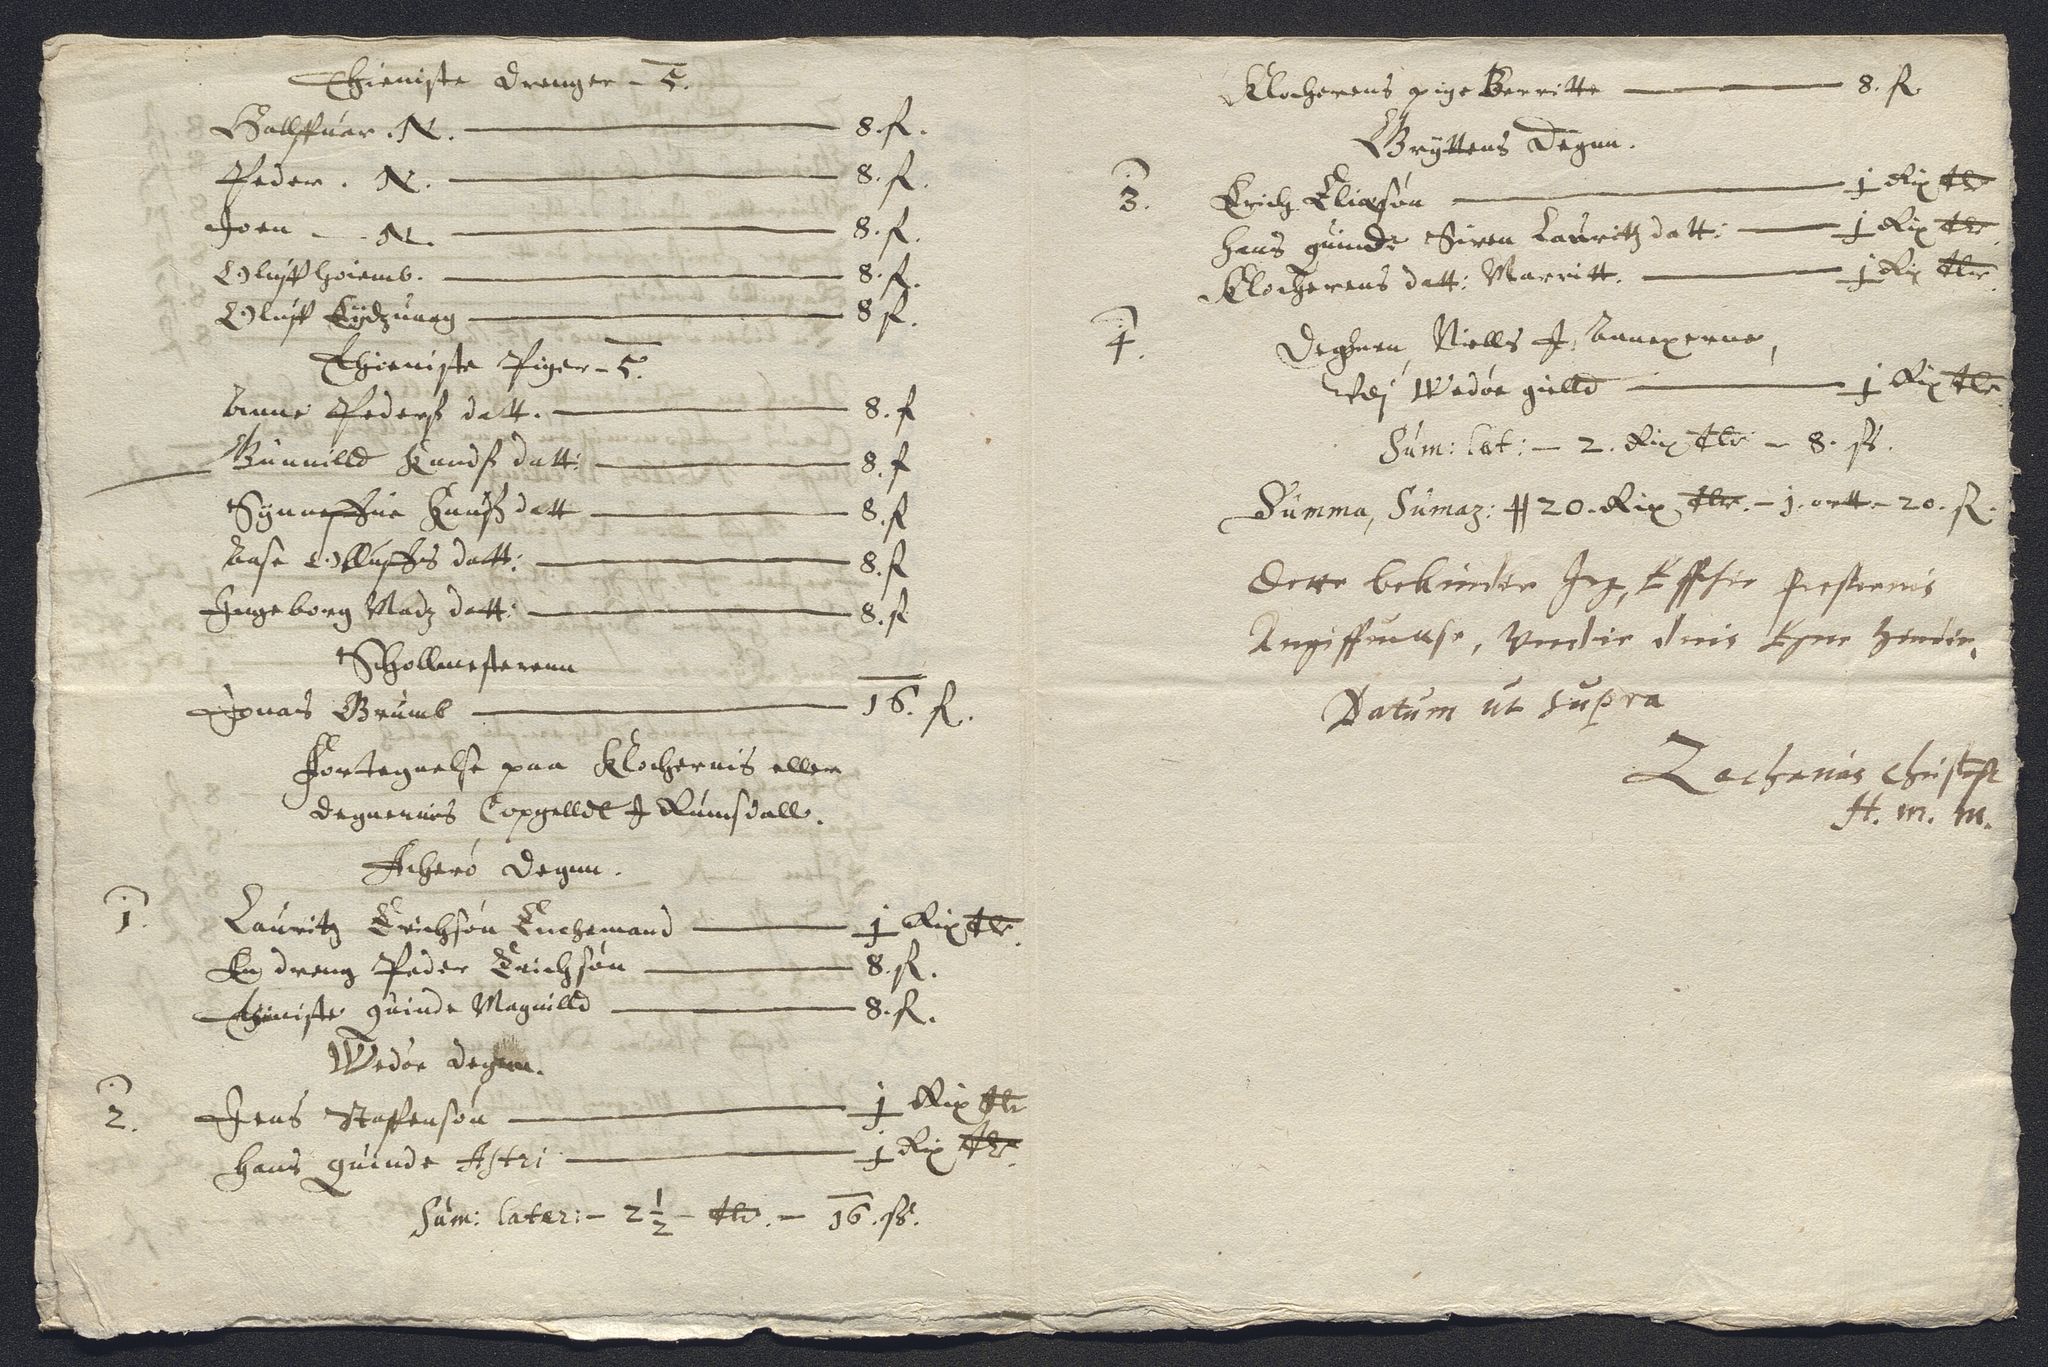 Thieniste Drenger - 5.
Hallffuar. N. 8. ß.
Peder. N. 8. ß.
Joen N. 8. ß.
Oluff hoiemb. 8. ß.
Oluff 8 ß.
Thieniste Piger - 5.
Anne Pederß datt. 8. ß
Gunnilld Knudß datt: 8. ß
Synneffue Knuß datt 8. ß
Aase Olluffs datt: 8. ß
Ingeborg Madz datt: 8. ß
Schollmesterenn
Jonas Grumb 16. ß.
Fortegnelse paa Klochernis eller
degnernis Copgelldt J Rumsdall.
Acherö Degnn.
1. Lauritz Erichsön Enchemand 1 Rix dlr.
En dreng Peder Erichsön 8. ß.
Thieniste quinde Magnilld 8. ß.
Wedöe degnn.
2. Jens Staffensön 1 Rix dlr
Hans quinde Astri 1 Rix dlr.
Sum: later: - 2 1/2 - dlr. - 16. ß.
Klocherens pige Berritte 8. ß
Gryttens Degnn.
3. Erich Eliasön 1 Rix dlr
Hans quinde Siren Lauritz datt: 1 Rix dlr.
Klocherens datt: Marritt. 1 Rix dlr.
4. Deghnen Niells J Annexerne,
Vdj Wedöe gielld 1 Rix dlr.
Sum: lat: - 2. Rix dlr - 8. ß.
Summa, Sumaz: 20. Rix dlr. - 1. ortt - 20. ß.
Dette bekinder Jeg, Effther Presternis
Angiffuelse, Vnder min Egne Hender.
Datum ut supra
Zacharias Christenß
H. m. m.